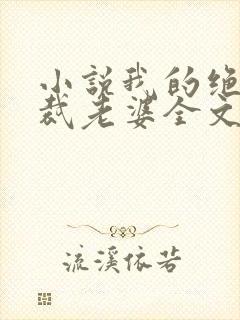 小说我的绝
裁老婆全文
流溪依若